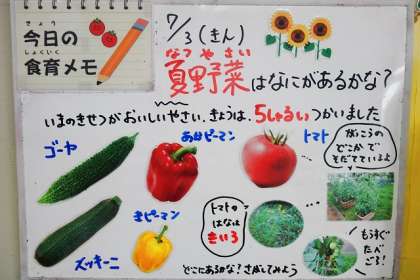 きょう
今日の
しょくいく
食育メモ
7/3(きん)
なつ や さい
夏野菜はなにがあるかな?
いまのきせつがおいしいやさい。きょうは、5しゅるいつかいました
ゴーヤ
あかピーマン
トマト
がっこうの
どこかで
そだてているよ
ズッキーニ
きピーマン
トマトの
はなは
きいろ
もうすぐ
たべ
ごろ!
どこにあるかな?さがしてみよう